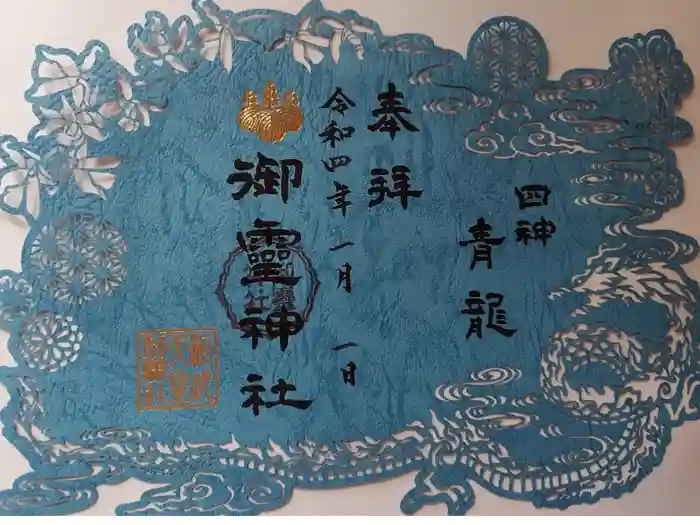 四神
青龍
奉拝
令和四年 一月 一日
御靈神社